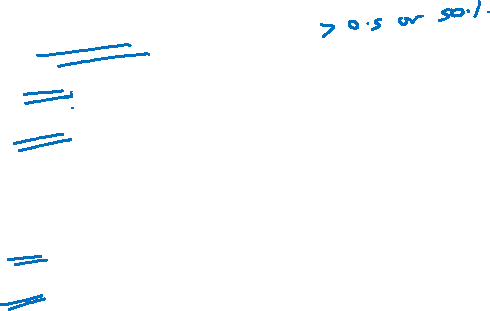 > 0.5 or 50%.